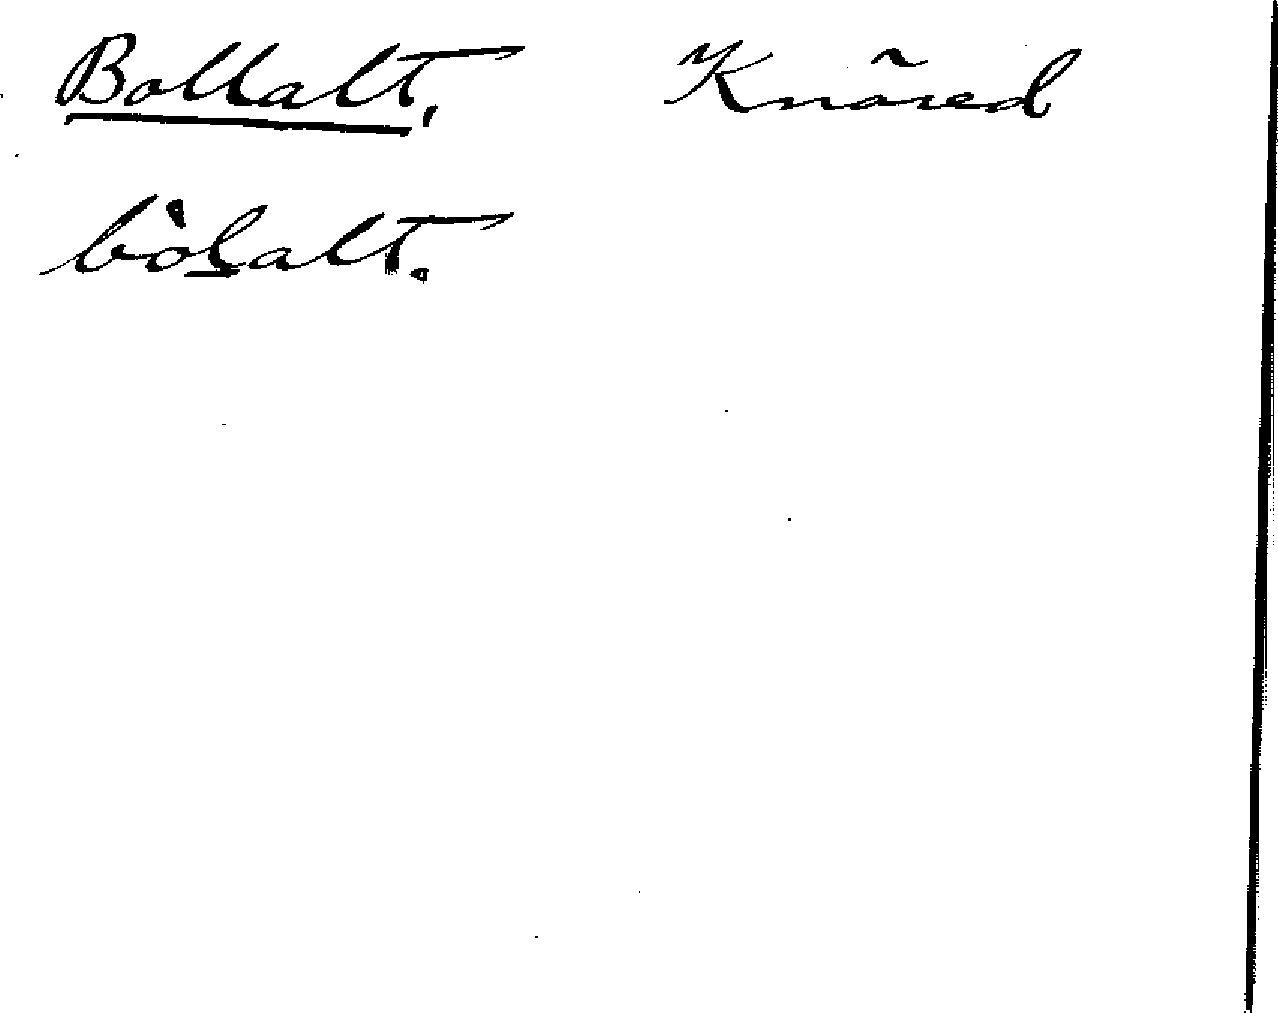 Bollalt, Knäred
bòl̲alt.